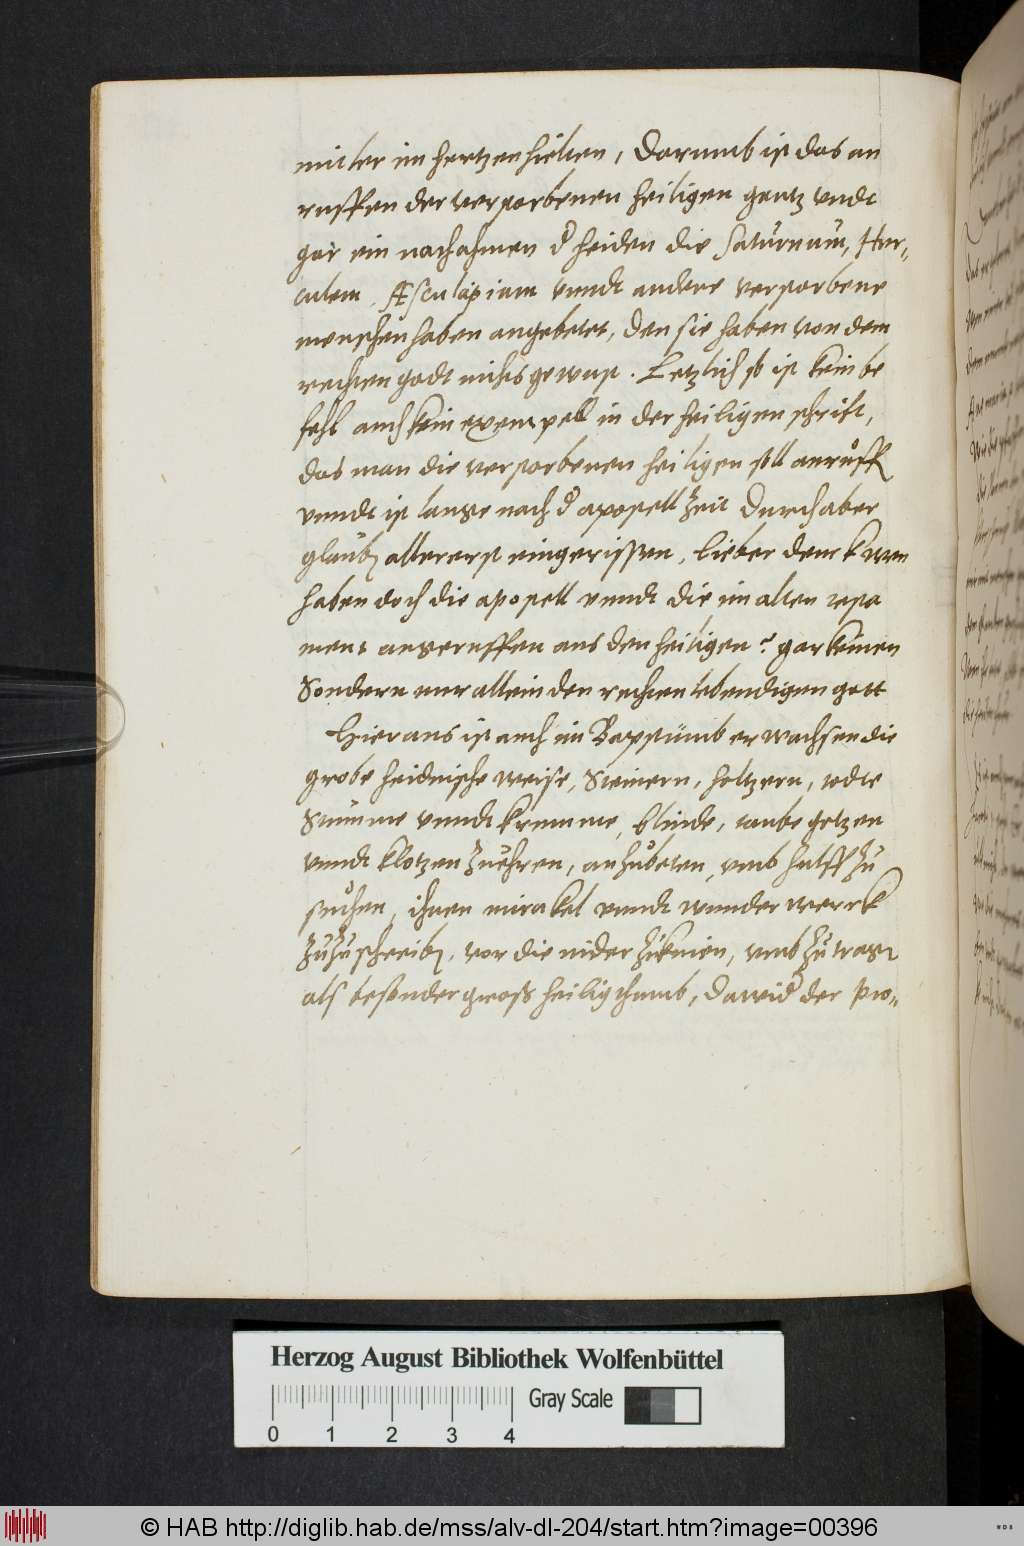 mitler im hertzen hielten, Darumb ist das an
ruffen der verstorbenen heiligen gantz vndt
gar ein nachahmen d' heiden die Saturnum, Her-
culem, Æsculapiam vnndt andere verstorbene
menschen haben angebetet, den sie haben von dem
rechten godt nichts gewust. Letzlich so ist kein be
fehl auch kein exempell in der heiligen schrift,
das man die verstorbenen heiligen soll anruff
vnndt ist lange nach d' apostell zeit Durch aber
glaub allererst eingerissen, Lieber denck wen
haben doch die apostell vnndt die im alten testa
ment angeruffen aus den heiligen? gar keinen
Sondern nur allein den rechten lebendigen gott
Hieraus ist auch im Bapstumb erwachsen die
grobe heidnische weise, Steinern, holtzern, todte
Stumme vnndt krumme, blinde, taube getzen
vnndt klotzen zu ehren, anzubeten, vmb hulff zu
suchen, ihnen mirakel vnndt wunderwerck
zuzuschreib, vor die nider zuknien, vmb zutrag
als besonder gross heiligthumb, Dawid' der Pro-
Herzog August Bibliothek Wolfenbüttel
Gray Scale
0 1 2 3 4
© HAB http://diglib.hab.de/mss/alv-dl-204/start.htm?image=00396